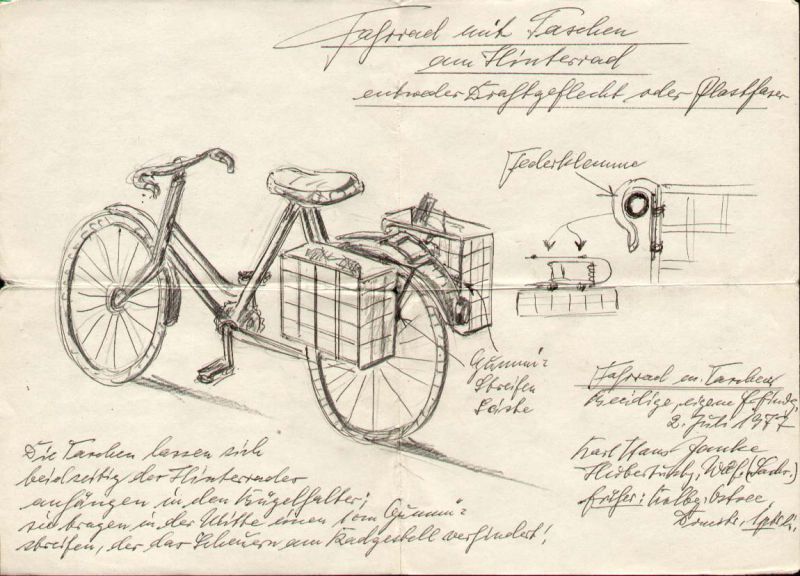 Fahrrad mit Taschen
am Hinterrad
entweder Kraftgeflecht oder Plastfaser
Federklemme
Gummi=
Streifen
Leiste
Fahrrad m. Taschen
eigene Erfindg.
2. Juli 1977
Karl Hans Janke
Hubertusbg., (Sachs.)
früher: Kolbg. Ostsee,
Die Taschen lassen sich
beidseitig der Hinterrader
anhängen in den Bügelhalter;
sie tragen in der Mitte einen 1cm Gummi=
streifen, der das Scheuern am Radgestell verhindert!